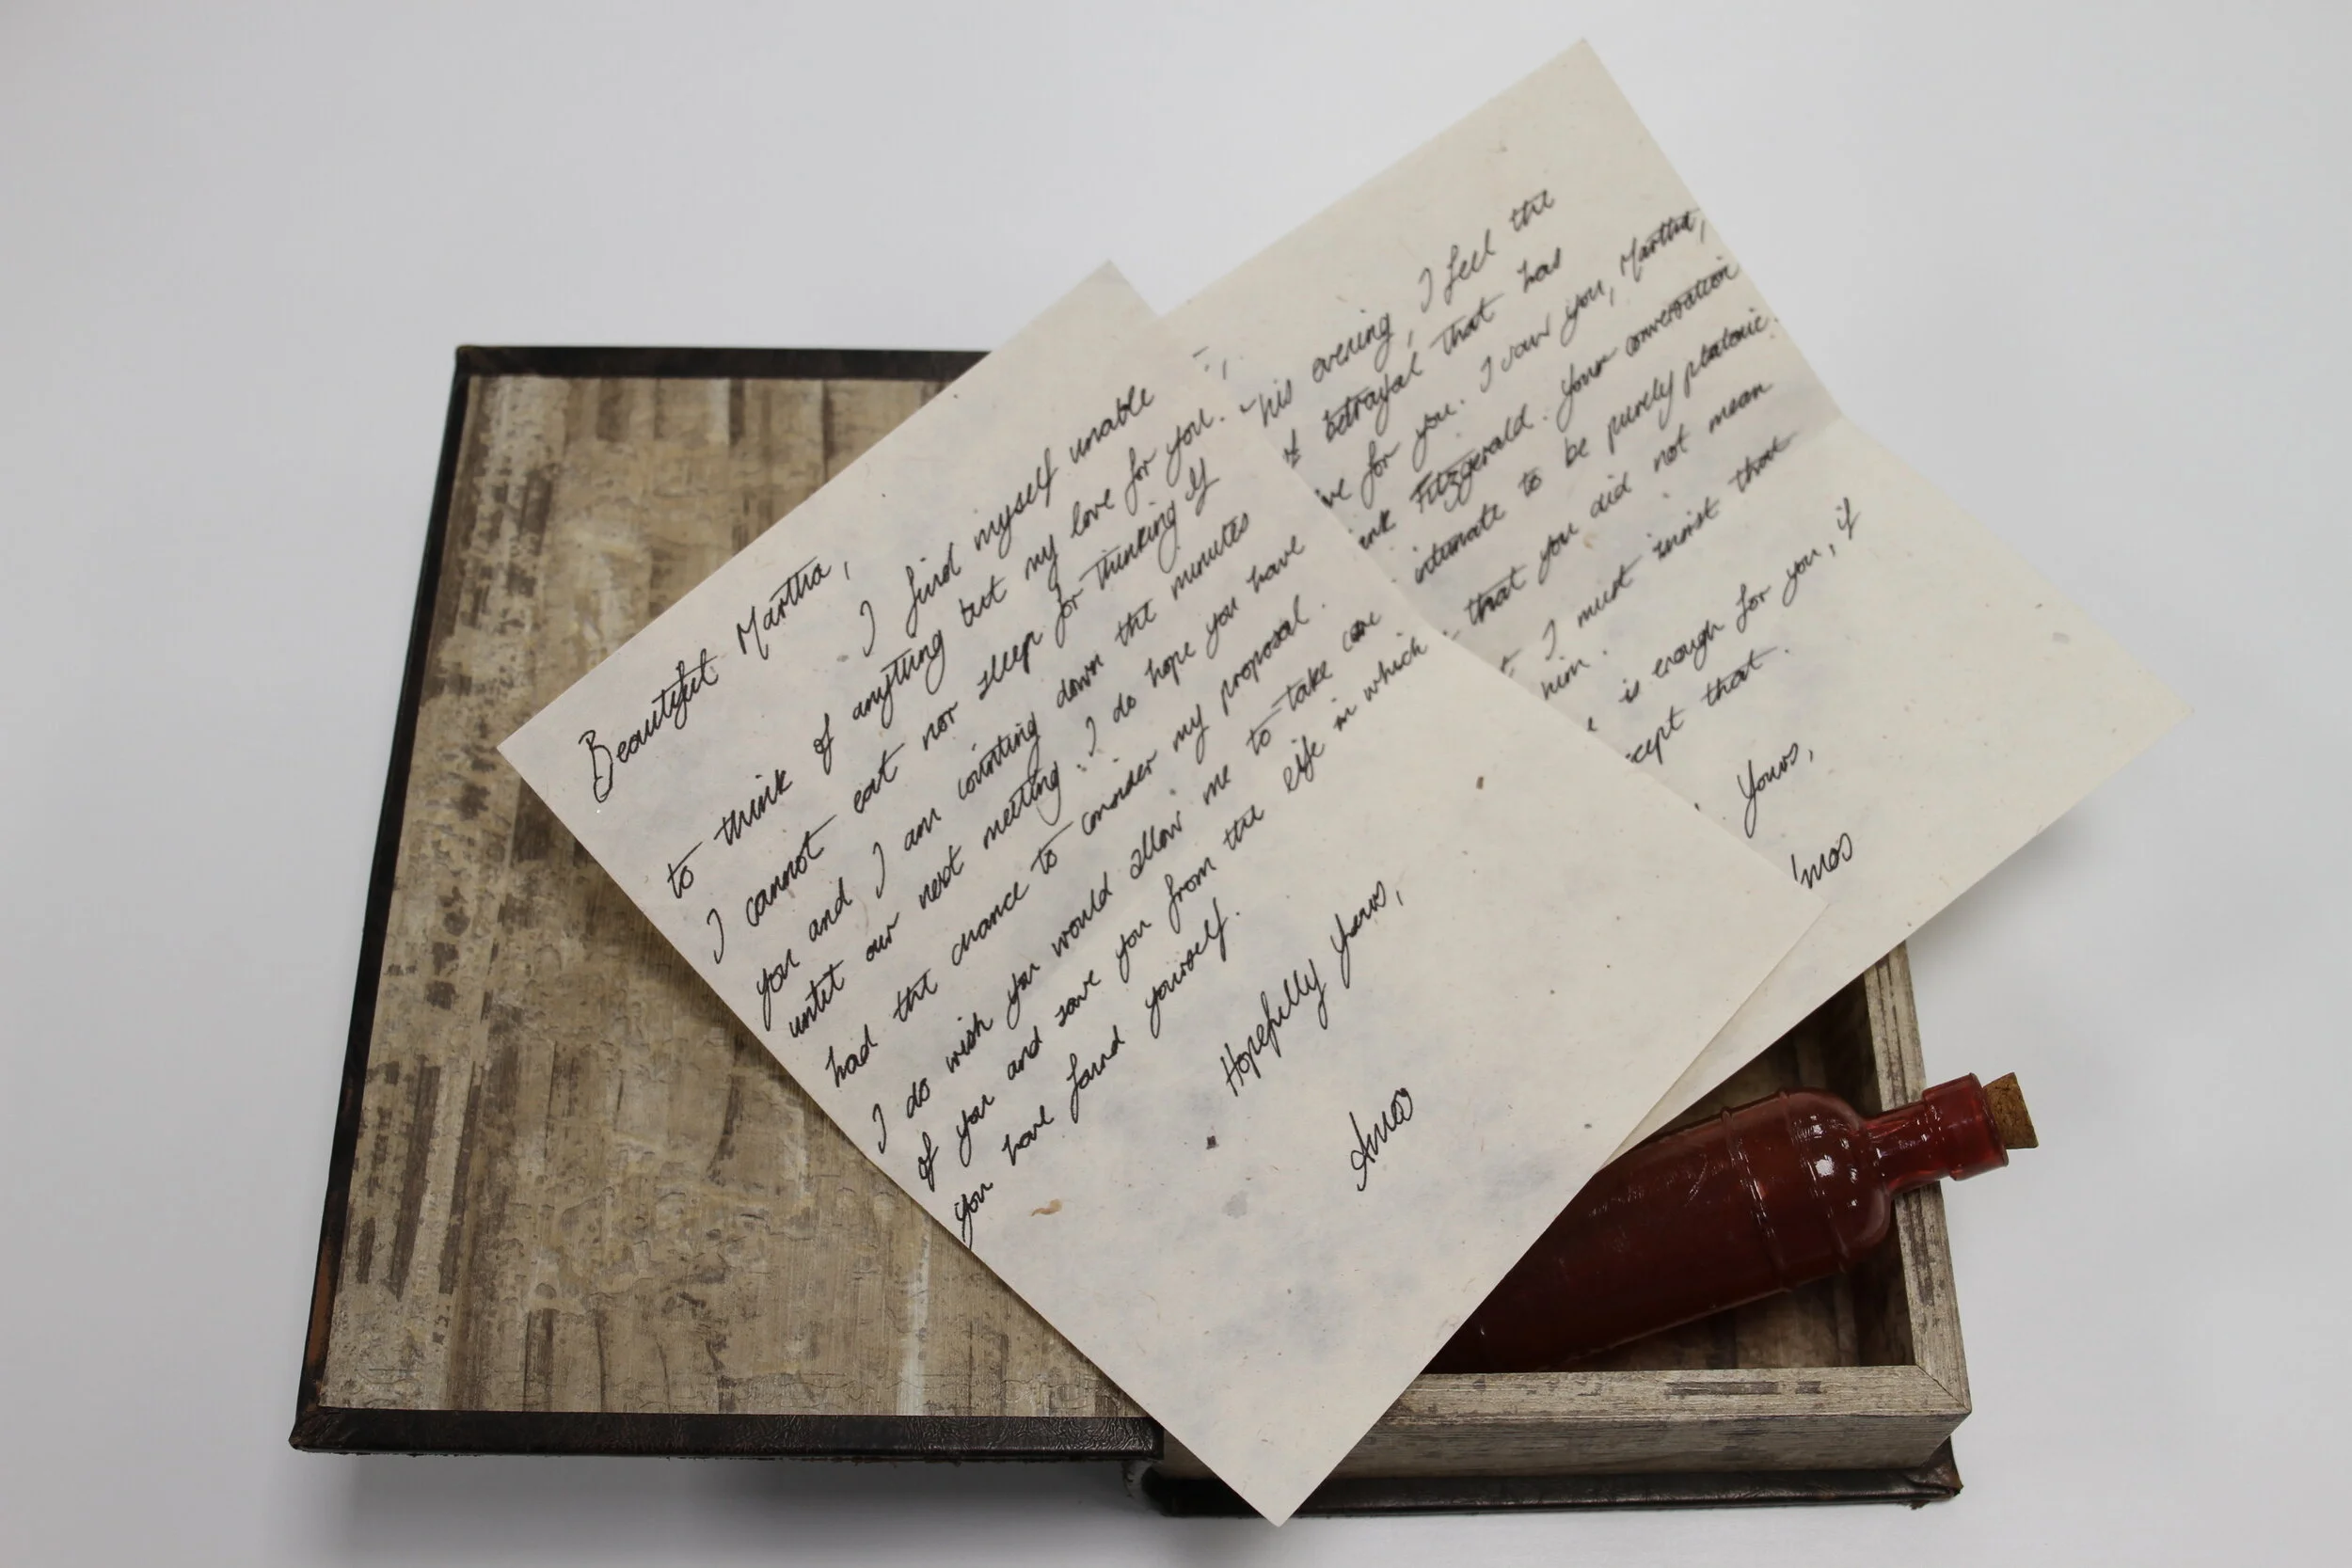 Beautiful Martha,
I find myself unable
to think of anything but my love for you.
I cannot eat nor sleep for thinking of
you and I am counting down the minutes
until our next meeting. I do hope you have
had the chance to consider my proposal.
I do wish you would allow me to take care
of you and save you from the life in which
you have found yourself.
Hopefully yours,
Amos
his evening, I feel the
betrayal that has
for you. I saw you, Martha,
Fitzgerald. Your conversation
intimate to be purely platonic.
that you did not mean
I must insist that
him.
is enough for you, if
cept that.
Yours,
mos